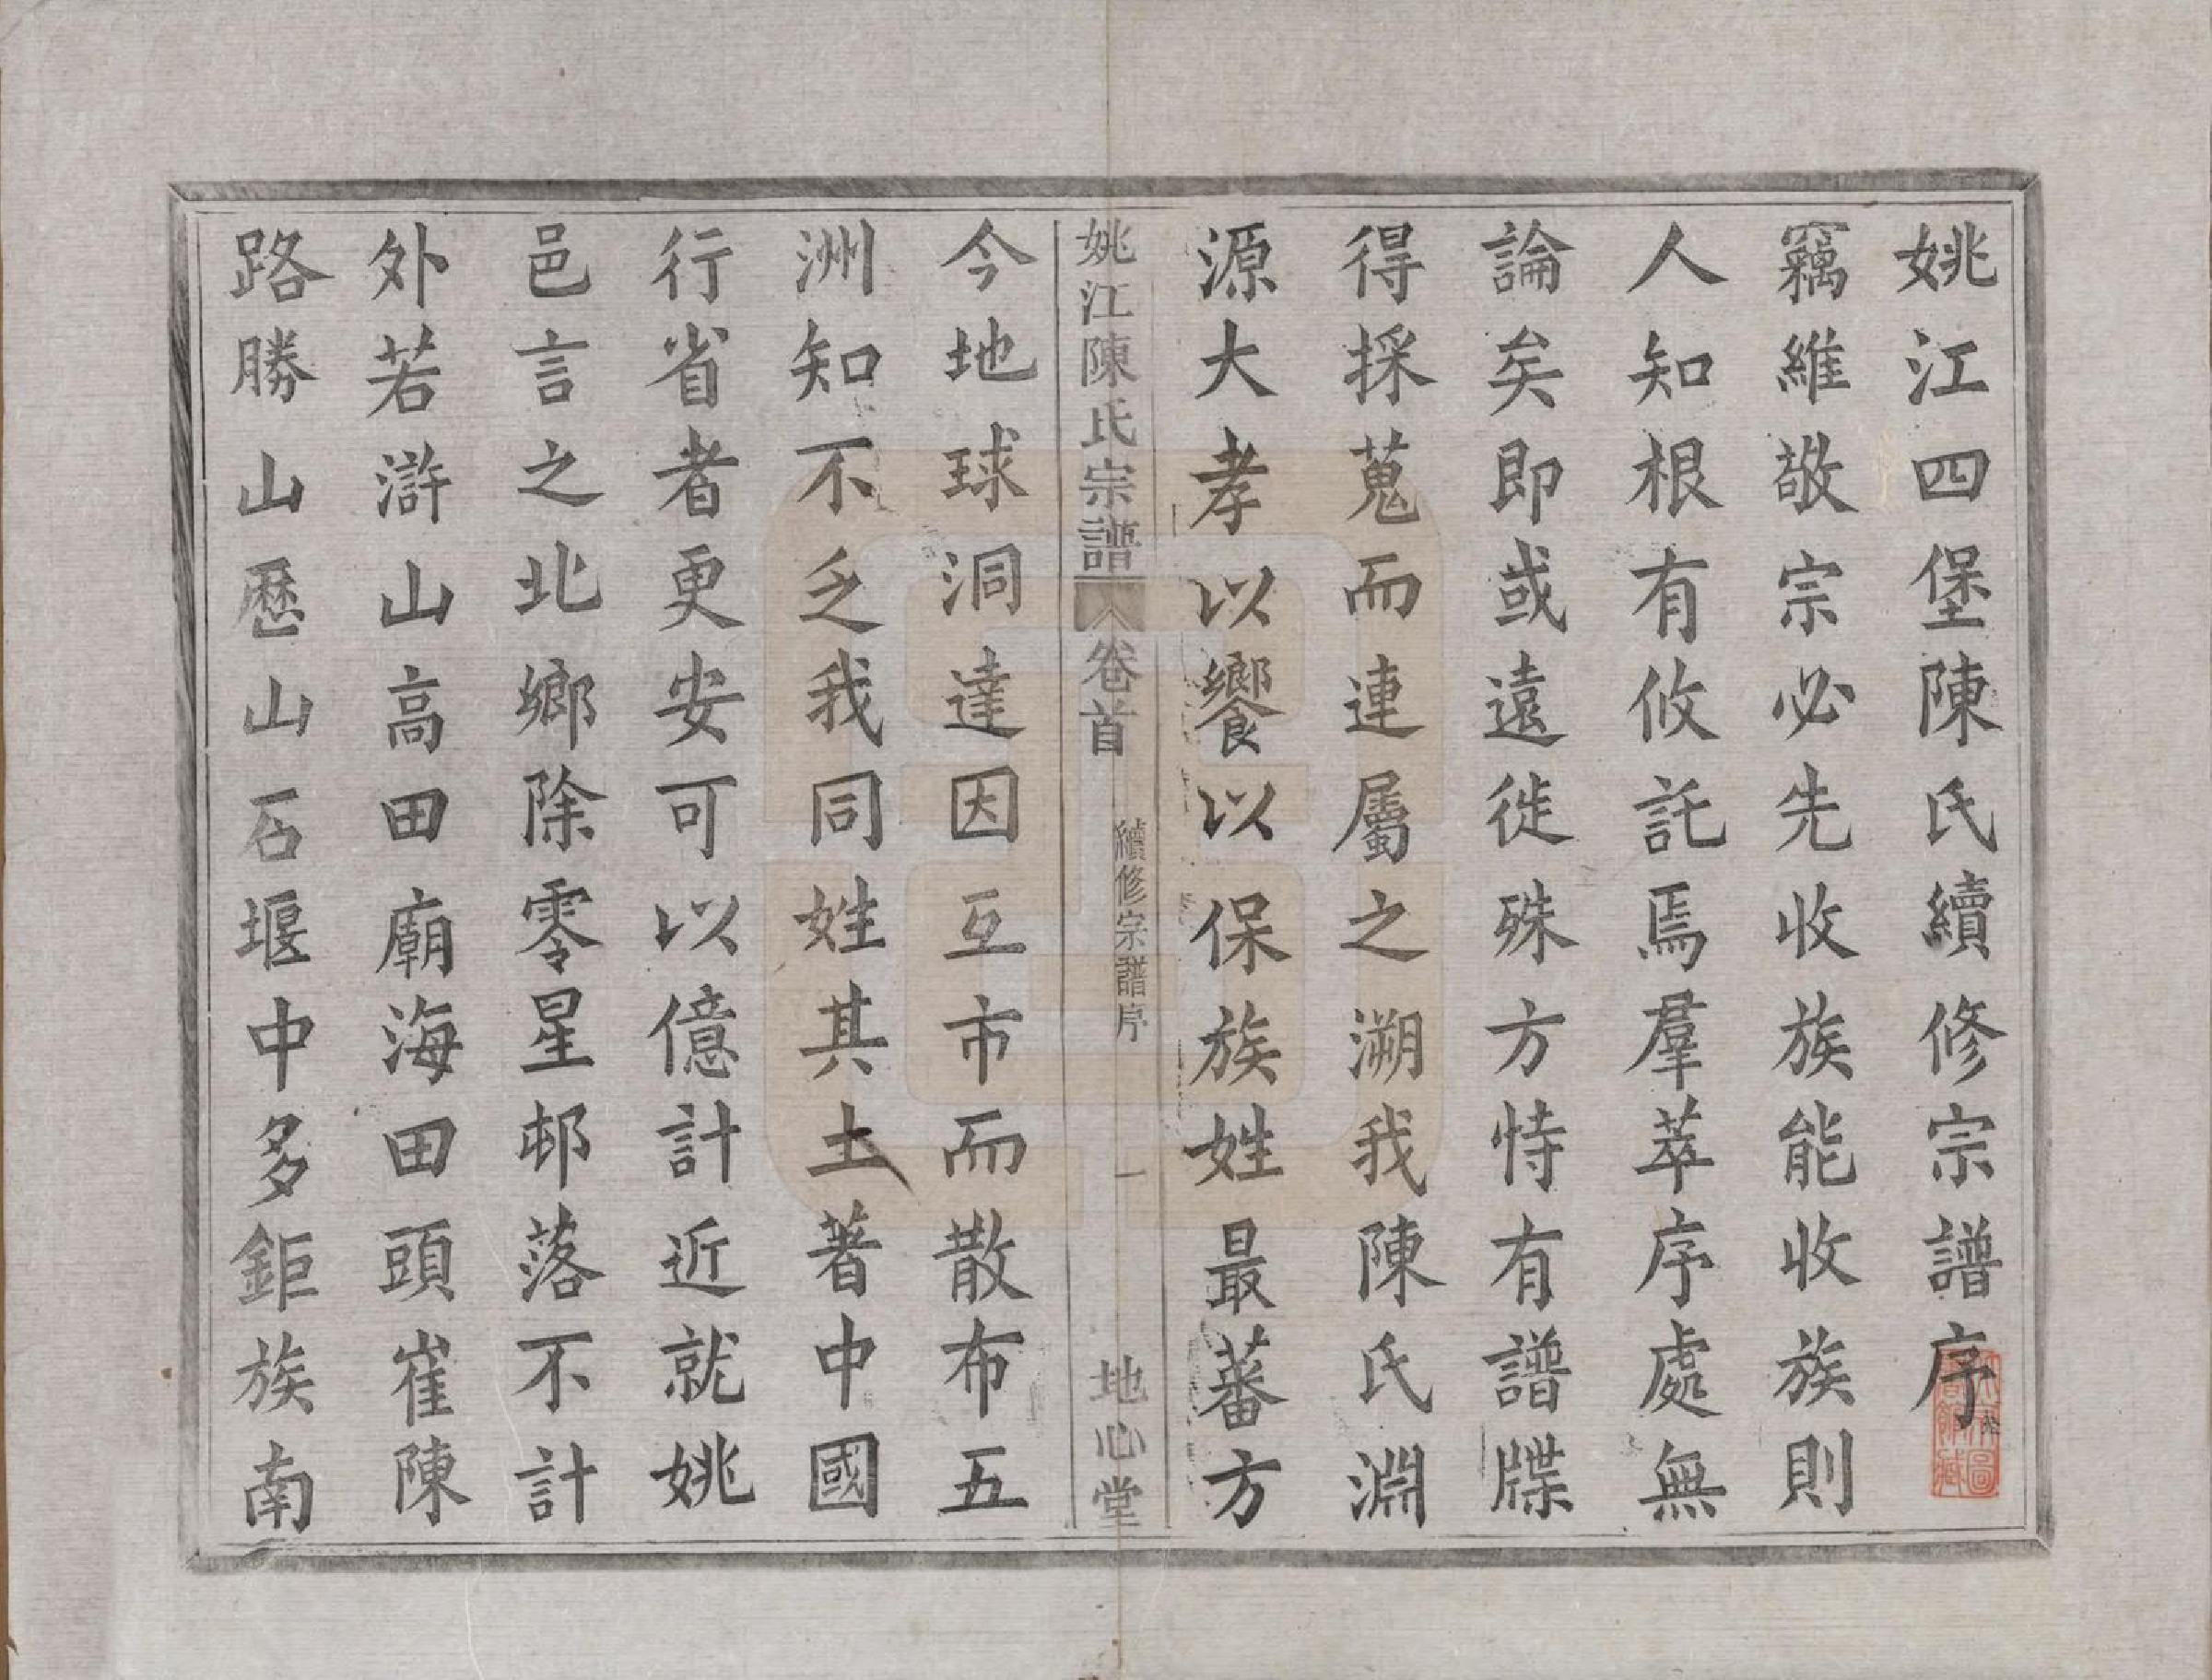 姚江四堡陳氏續修宗譜序
竊維敬宗必先收族能收族則
人知根有攸託焉羣萃序處無
論矣即或遠徙殊方恃有譜牒
得採蒐而連屬之溯我陳氏淵
源大孝以饗以保族姓最蕃方
姚江陳氏宗譜
卷首
續修宗譜序
一
地心堂
今地球洞達因互市而散布五
洲知不乏我同姓其土著中國
行省者更安可以億計近就姚
邑言之北鄉除零星邨落不計
外若滸山高田廟海田頭崔陳
路勝山歷山石堰中多鉅族南